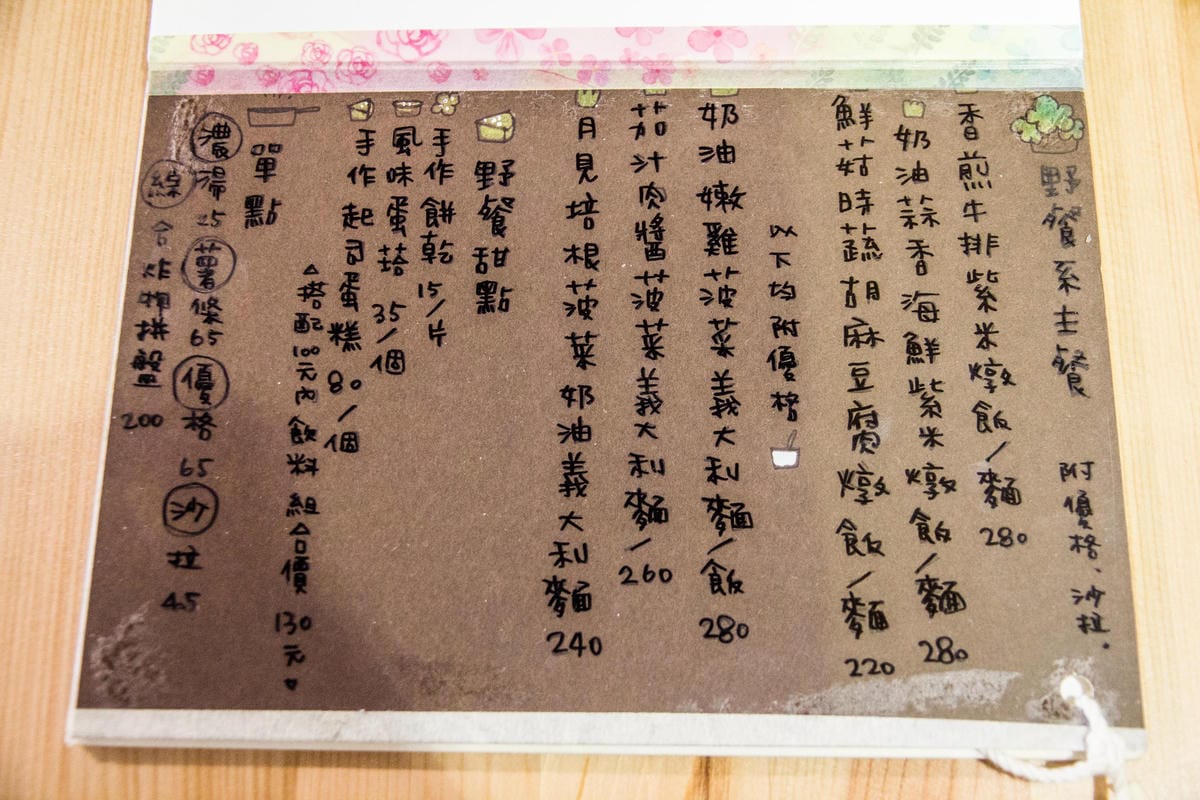 野餐系主餐 附優格、沙拉.
香煎牛排紫米燉飯/麵 280
奶油蒜香海鮮紫米燉飯/麵 280
鮮菇時蔬胡麻豆腐燉飯/麵 220
以下均附優格
奶油嫩雞菠菜義大利麵/飯 280
茄汁肉醬菠菜義大利麵/ 260
月見培根菠菜奶油義大利麵 240
野餐甜點
手作餅乾 15/片
風味蛋塔 35/個
手作起司蛋糕 80/個
△搭配100元內飲料組合價 130元♥
單點
濃湯 25 薯條 65 優格 65 沙拉 45
綜合炸物拼盤 200